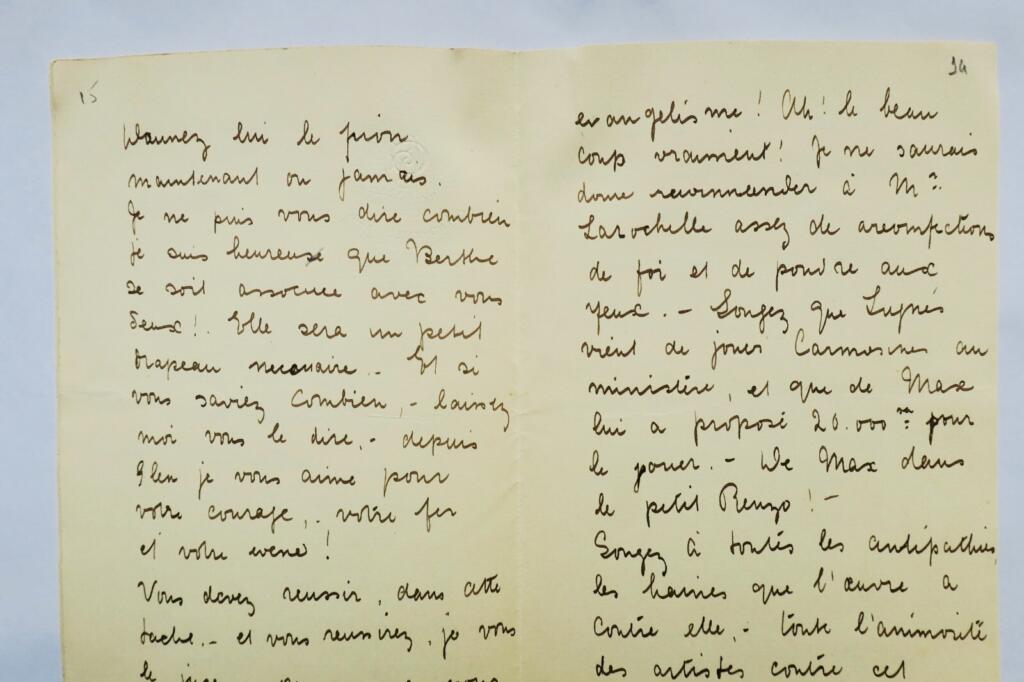 15
Donnez lui le prion
maintenant ou jamais.
Je ne puis vous dire combien
je suis heureuse que Berthe
se soit associee avec vous
deux! Elle sera un petit
drapeau necessaire. - Et si
vous saviez combien, - laissez
moi vous le dire, - depuis
je vous aime pour
votre courage, - votre fer
et votre !
Vous devez reussir, dans cette
tache. - et vous reussirez, je vous
le
24
evangelisme! Ah! le beau
coup vraiment! Je ne saurais
donc recommender à Mr.
Larochelle assez de
de foi et de poudre aux
yeux. - Songez que Lugnés
vient de jouer Carmosines au
ministère, et que de Max
lui a proposé 20.000 pour
le jouer. - De Max dans
le petit Renzo! -
Songez à toutés les antipathies,
les haines que l'œuvre a
contre elle, - toute l'animosité
des artistes contre cet